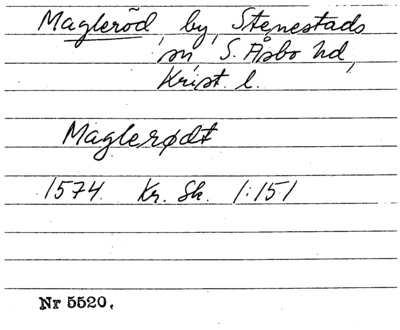 Magleröd, by, Stenestads
sn, S. Åsbo hd,
Krist. l.
Maglerødt
1574. Kr. Sk. 1:151
Nr 5520.